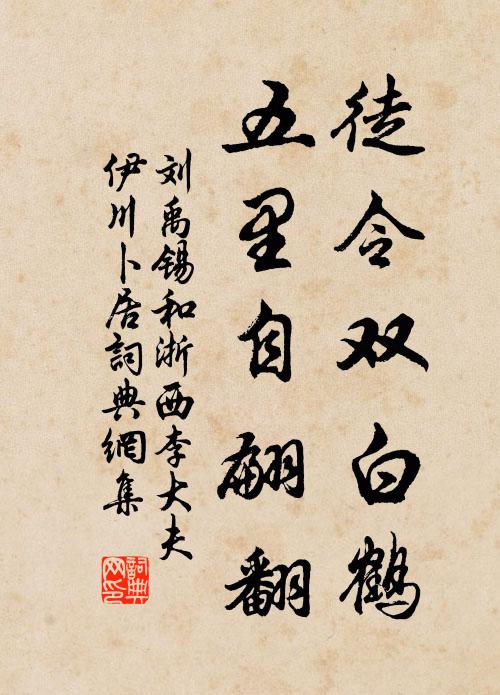 徒令双白鹤
五里自翩翻
刘禹锡和浙西李大夫
伊川卜居詞典網集
詞典
网印